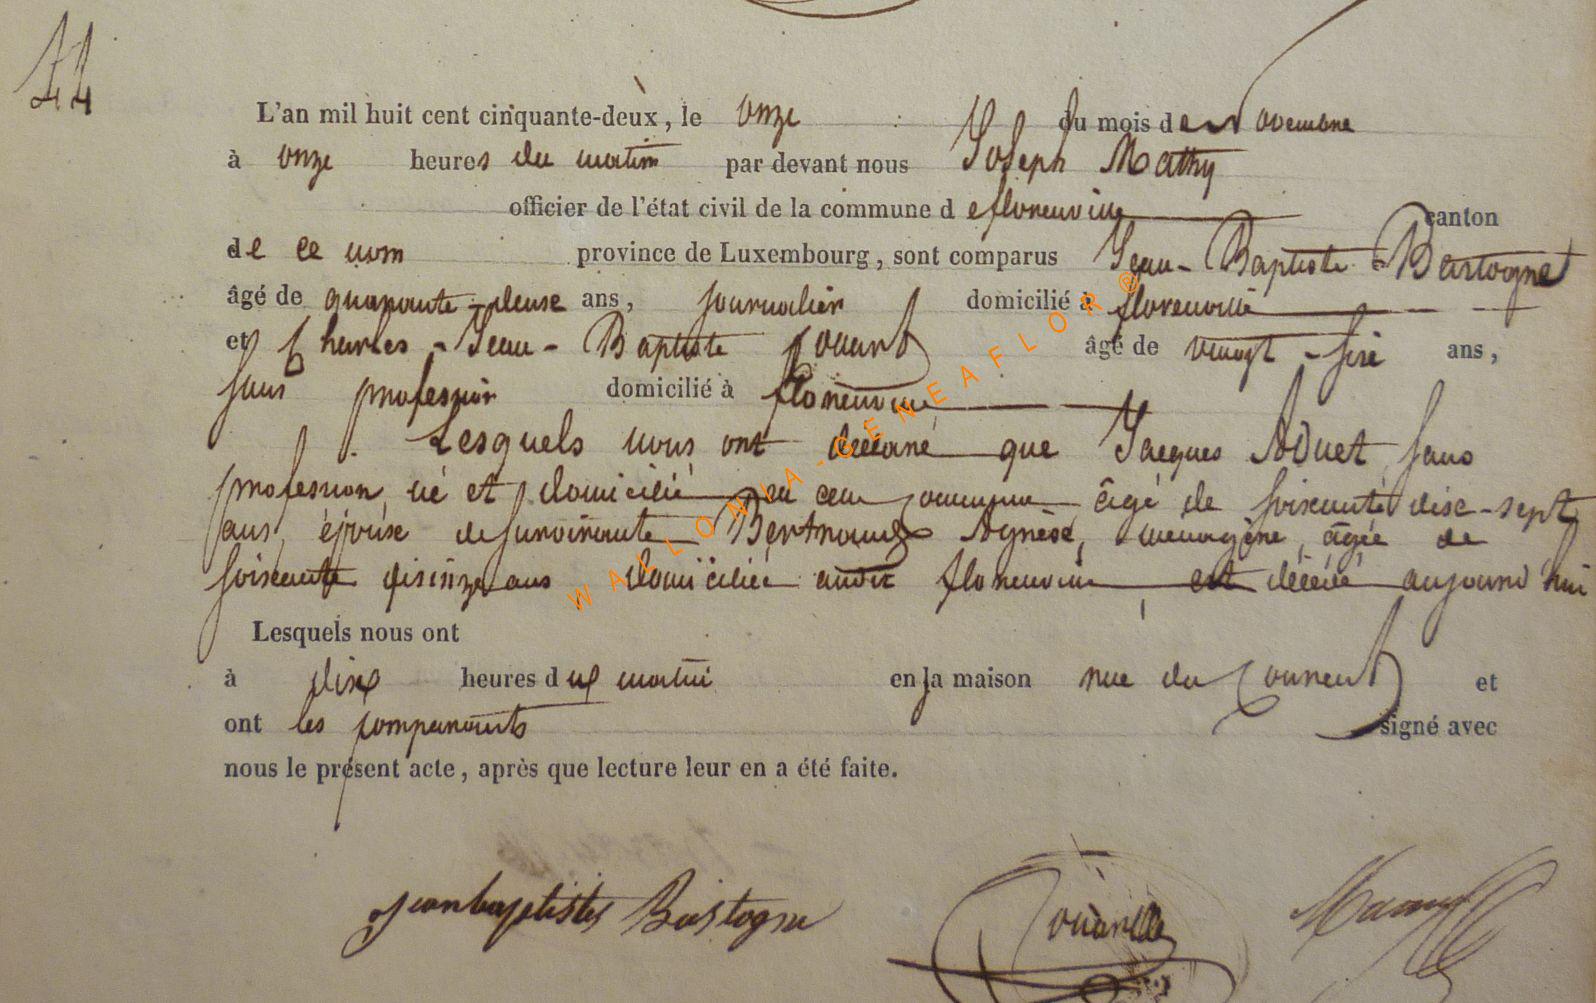 44
L'an mil huit cent cinquante-deux, le onze du mois de Novembre
à onze heures du matin par devant nous Joseph Mathy
officier de l'état civil de la commune de florenville canton
de ce nom province de Luxembourg, sont comparus Jean-Baptiste Bastogne
âgé de quarante-deux ans, journalier domicilié à florenville
et Charles-Jean-Baptiste âgé de vingt-six ans,
sans profession domicilié à florenville
Lesquels nous ont déclaré que Jacques Aduet sans
profession né et domicilié en cette commune âgé de soixante dix-sept
ans, époux de survivante Bertrand Agnèse, ménagère, âgée de
soixante quinze ans domiciliée audit florenville est décédé aujourd'hui
Lesquels nous ont
à dix heures du matin en la maison rue du et
ont les comparants signé avec
nous le présent acte, après que lecture leur en a été faite.
jeanbaptiste Bastogne
WALLONIA-GENEAFLOR®